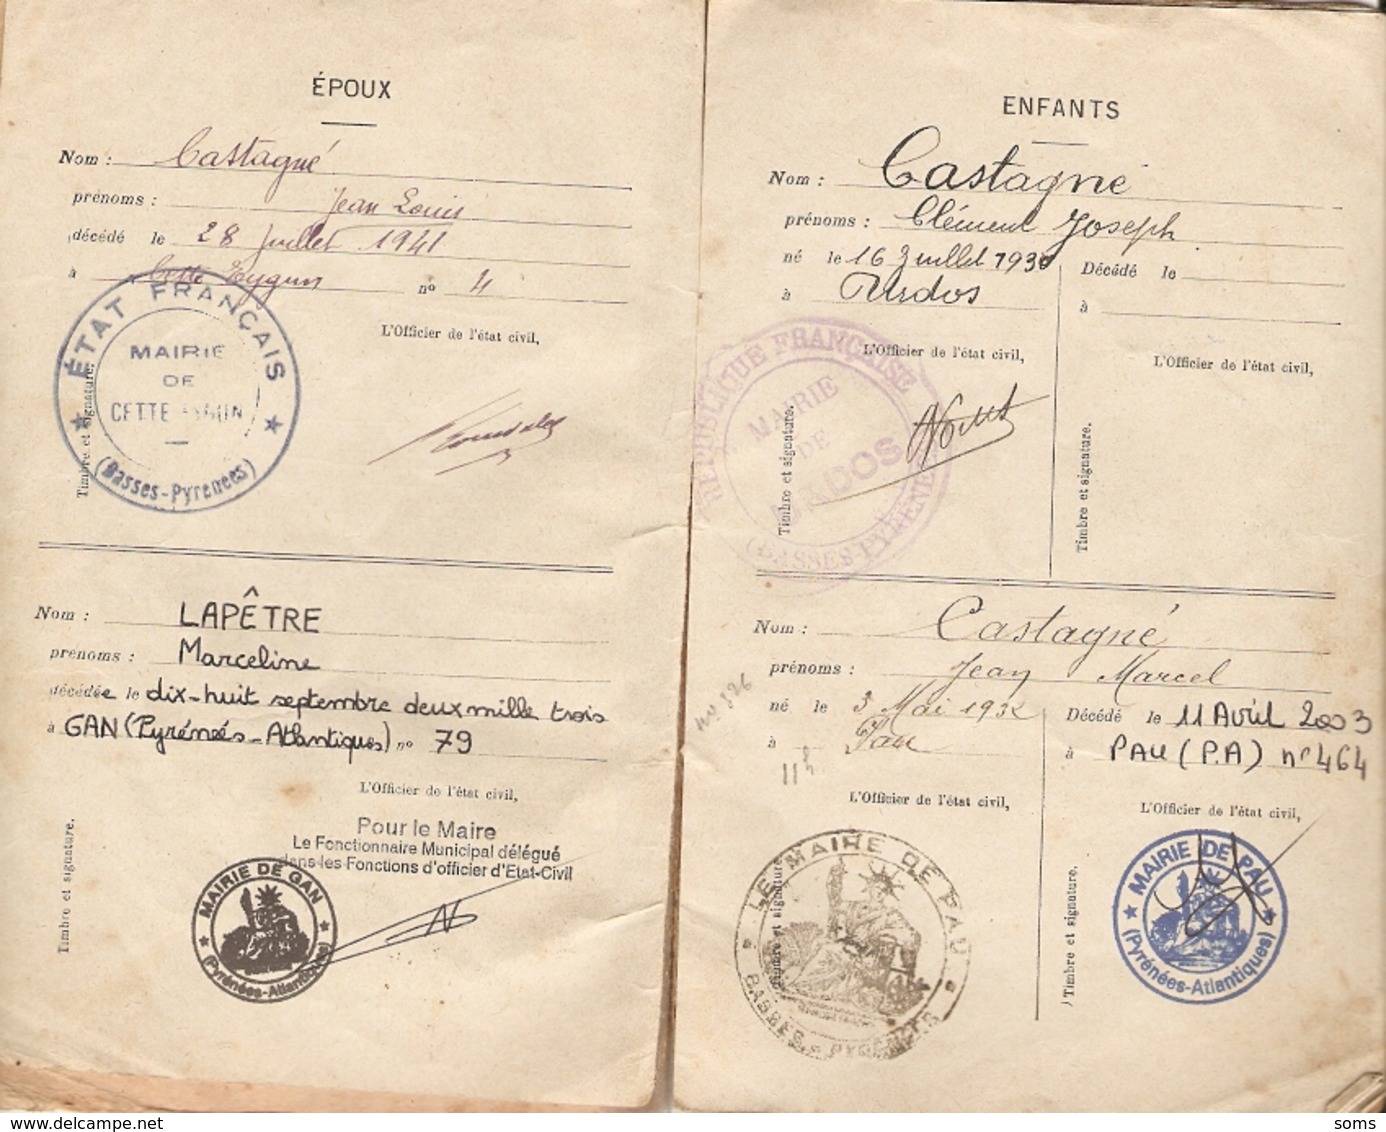 ÉPOUX
Nom : Castagné
prénoms : Jean Louis
décédé le 28 Juillet 1941
à Cette Eygun n° 4
L'Officier de l'état civil,
Timbre et signature.
ÉTAT FRANÇAIS
MAIRIE
DE
CETTE-EYGUN
(Basses-Pyrénées)
Nom : LAPÊTRE
prénoms : Marceline
décédée le dix-huit septembre deux mille trois
à GAN (Pyrénées-Atlantiques) n° 79
L'Officier de l'état civil,
Pour le Maire
Le Fonctionnaire Municipal délégué
dans les Fonctions d'officier d'Etat-Civil
Timbre et signature.
MAIRIE DE GAN
(Pyrénées-Atlantiques)
ENFANTS
Nom : Castagné
prénoms : Clément Joseph
né le 16 Juillet 1930
à Urdos
L'Officier de l'état civil,
Timbre et signature.
Décédé le
à
L'Officier de l'état civil,
Timbre et signature.
RÉPUBLIQUE FRANÇAISE
MAIRIE
DE
URDOS
(BASSES-PYRÉNÉES)
Nom : Castagné
prénoms : Jean Marcel
né le 3 Mai 1932
à Pau
11h
L'Officier de l'état civil,
Timbre et signature.
LE MAIRE DE PAU
BASSES-PYRÉNÉES
Décédé le 11 Avril 2003
à PAU (P.A) n° 464
L'Officier de l'état civil,
Timbre et signature.
MAIRIE DE PAU
(Pyrénées-Atlantiques)
soms